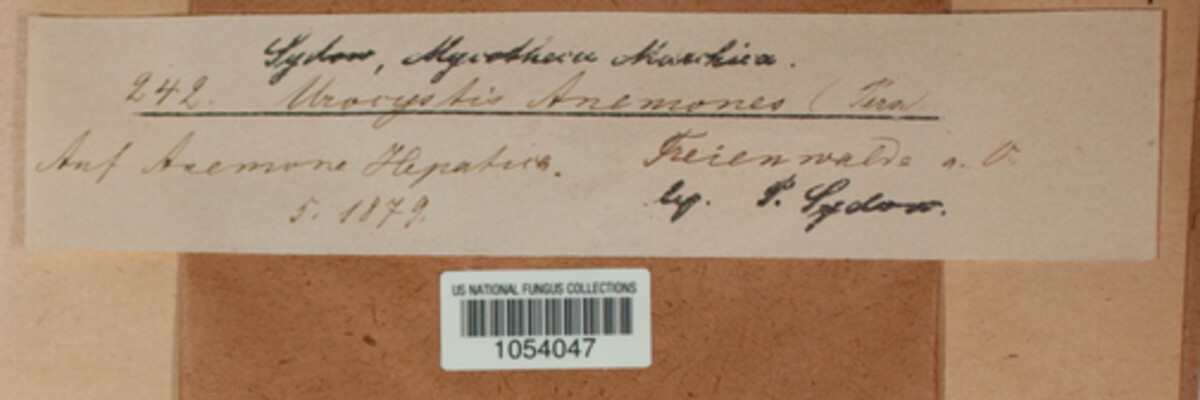 Sydow, Mycotheca Marchica.
242. Urocystis Anemones (Pers
Auf Anemone Hepatica. Freienwalde a. O.
5. 1879. leg. P. Sydow.
US NATIONAL FUNGUS COLLECTIONS
1054047